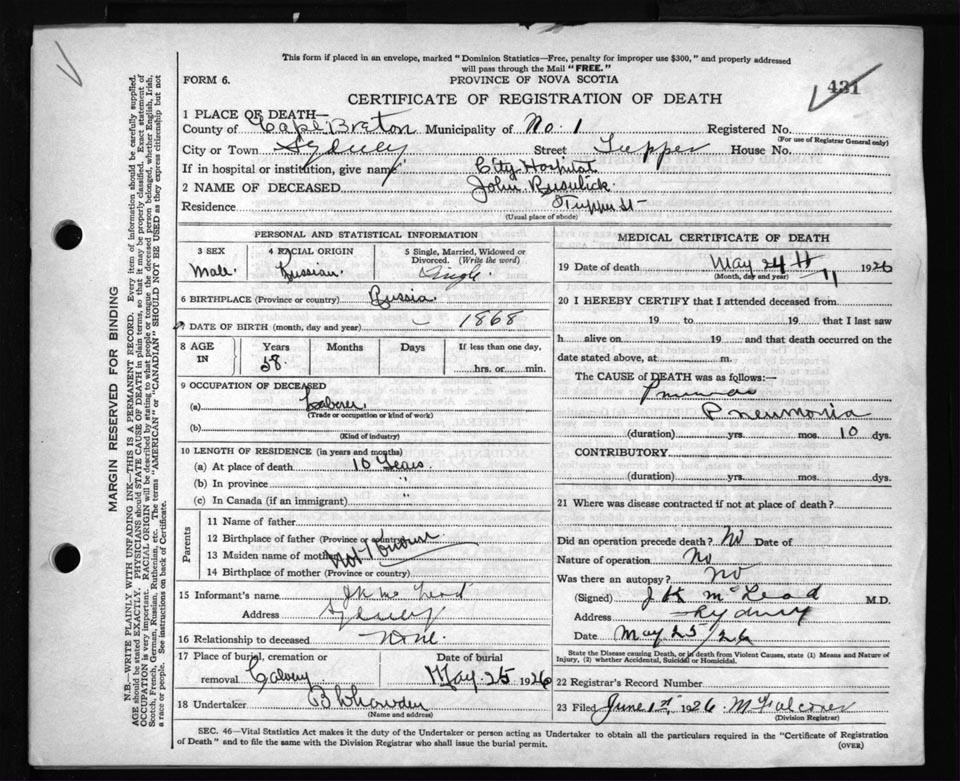 This form if placed in an envelope, marked "Dominion Statistics—Free, penalty for improper use $300," and properly addressed
will pass through the Mail "FREE."
FORM 6.
PROVINCE OF NOVA SCOTIA
431
CERTIFICATE OF REGISTRATION OF DEATH
1 PLACE OF DEATH—
County of Cape Breton Municipality of No. 1 Registered No.
(For use of Registrar General only)
City or Town Sydney Street Tupper House No.
If in hospital or institution, give name City Hospital
2 NAME OF DECEASED John
Residence Tupper St
(Usual place of abode)
PERSONAL AND STATISTICAL INFORMATION
3 SEX Male
4 RACIAL ORIGIN Russian
5 Single, Married, Widowed or Divorced. (Write the word) Single
6 BIRTHPLACE (Province or country) Russia
7 DATE OF BIRTH (month, day and year) — 1868
8 AGE IN Years 58 Months Days If less than one day, hrs. or min.
9 OCCUPATION OF DECEASED
(a) Laborer
(Trade or occupation or kind of work)
(b)
(Kind of industry)
10 LENGTH OF RESIDENCE (in years and months)
(a) At place of death 10 Years
(b) In province "
(c) In Canada (if an immigrant) "
Parents
11 Name of father
12 Birthplace of father (Province or country)
13 Maiden name of mother not known
14 Birthplace of mother (Province or country)
15 Informant's name J K McLeod
Address Sydney
16 Relationship to deceased None.
17 Place of burial, cremation or removal Calvery Date of burial May 25 1926
18 Undertaker
(Name and address)
MEDICAL CERTIFICATE OF DEATH
19 Date of death May 24th 1926
(Month, day and year) 11
20 I HEREBY CERTIFY that I attended deceased from
19 to 19 that I last saw
h alive on 19 and that death occurred on the
date stated above, at m.
The CAUSE of DEATH was as follows:—
Pneumonia
(duration) yrs. mos. 10 dys.
CONTRIBUTORY
(duration) yrs. mos. dys.
21 Where was disease contracted if not at place of death?
Did an operation precede death? No Date of
Nature of operation No
Was there an autopsy? No
(Signed) J K McLeod M.D.
Address Sydney
Date May 25/26
State the Disease causing Death, or in death from Violent Causes, state (1) Means and Nature of
Injury, (2) whether Accidental, Suicidal or Homicidal.
22 Registrar's Record Number
23 Filed June 1st, 1926 M Falconer
(Division Registrar)
SEC. 46—Vital Statistics Act makes it the duty of the Undertaker or person acting as Undertaker to obtain all the particulars required in the "Certificate of Registration
of Death" and to file the same with the Division Registrar who shall issue the burial permit.
(OVER)
MARGIN RESERVED FOR BINDING
N.B.—WRITE PLAINLY WITH UNFADING INK—THIS IS A PERMANENT RECORD. Every item of information should be carefully supplied.
AGE should be stated EXACTLY. PHYSICIANS should STATE CAUSE OF DEATH in plain terms, so that it may be properly classified. Exact statement of
OCCUPATION is very important. RACIAL ORIGIN will be described by stating to what people or tongue the deceased person belonged, whether English, Irish,
Scotch, French, German, Russian, Ruthenian, etc. The terms "AMERICAN" or "CANADIAN" SHOULD NOT BE USED as they express citizenship but not
a race or people. See instructions on back of Certificate.